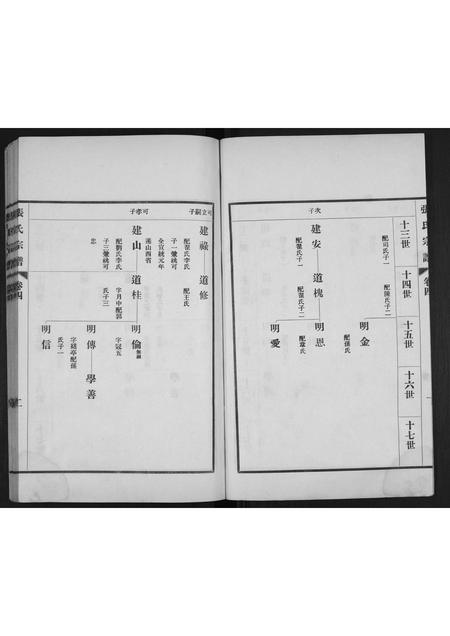 張氏宗譜
卷四
十三世
十四世
十五世
十六世
十七世
配司氏子一
配陳氏子二
明金
配孫氏
次子
建安
道槐
明恩
配翟氏子一
配翟氏子二
配韋氏
明愛
可立嗣子
建祿
道修
配翟氏李氏
配王氏
子一
全宣統元年
遷山西省
可孝子
建山
道桂
明倫
配劉氏李氏
字月中配郭
字冠五
氏子三
明傳
學善
配孫
氏子一
明信
張氏宗譜
卷四